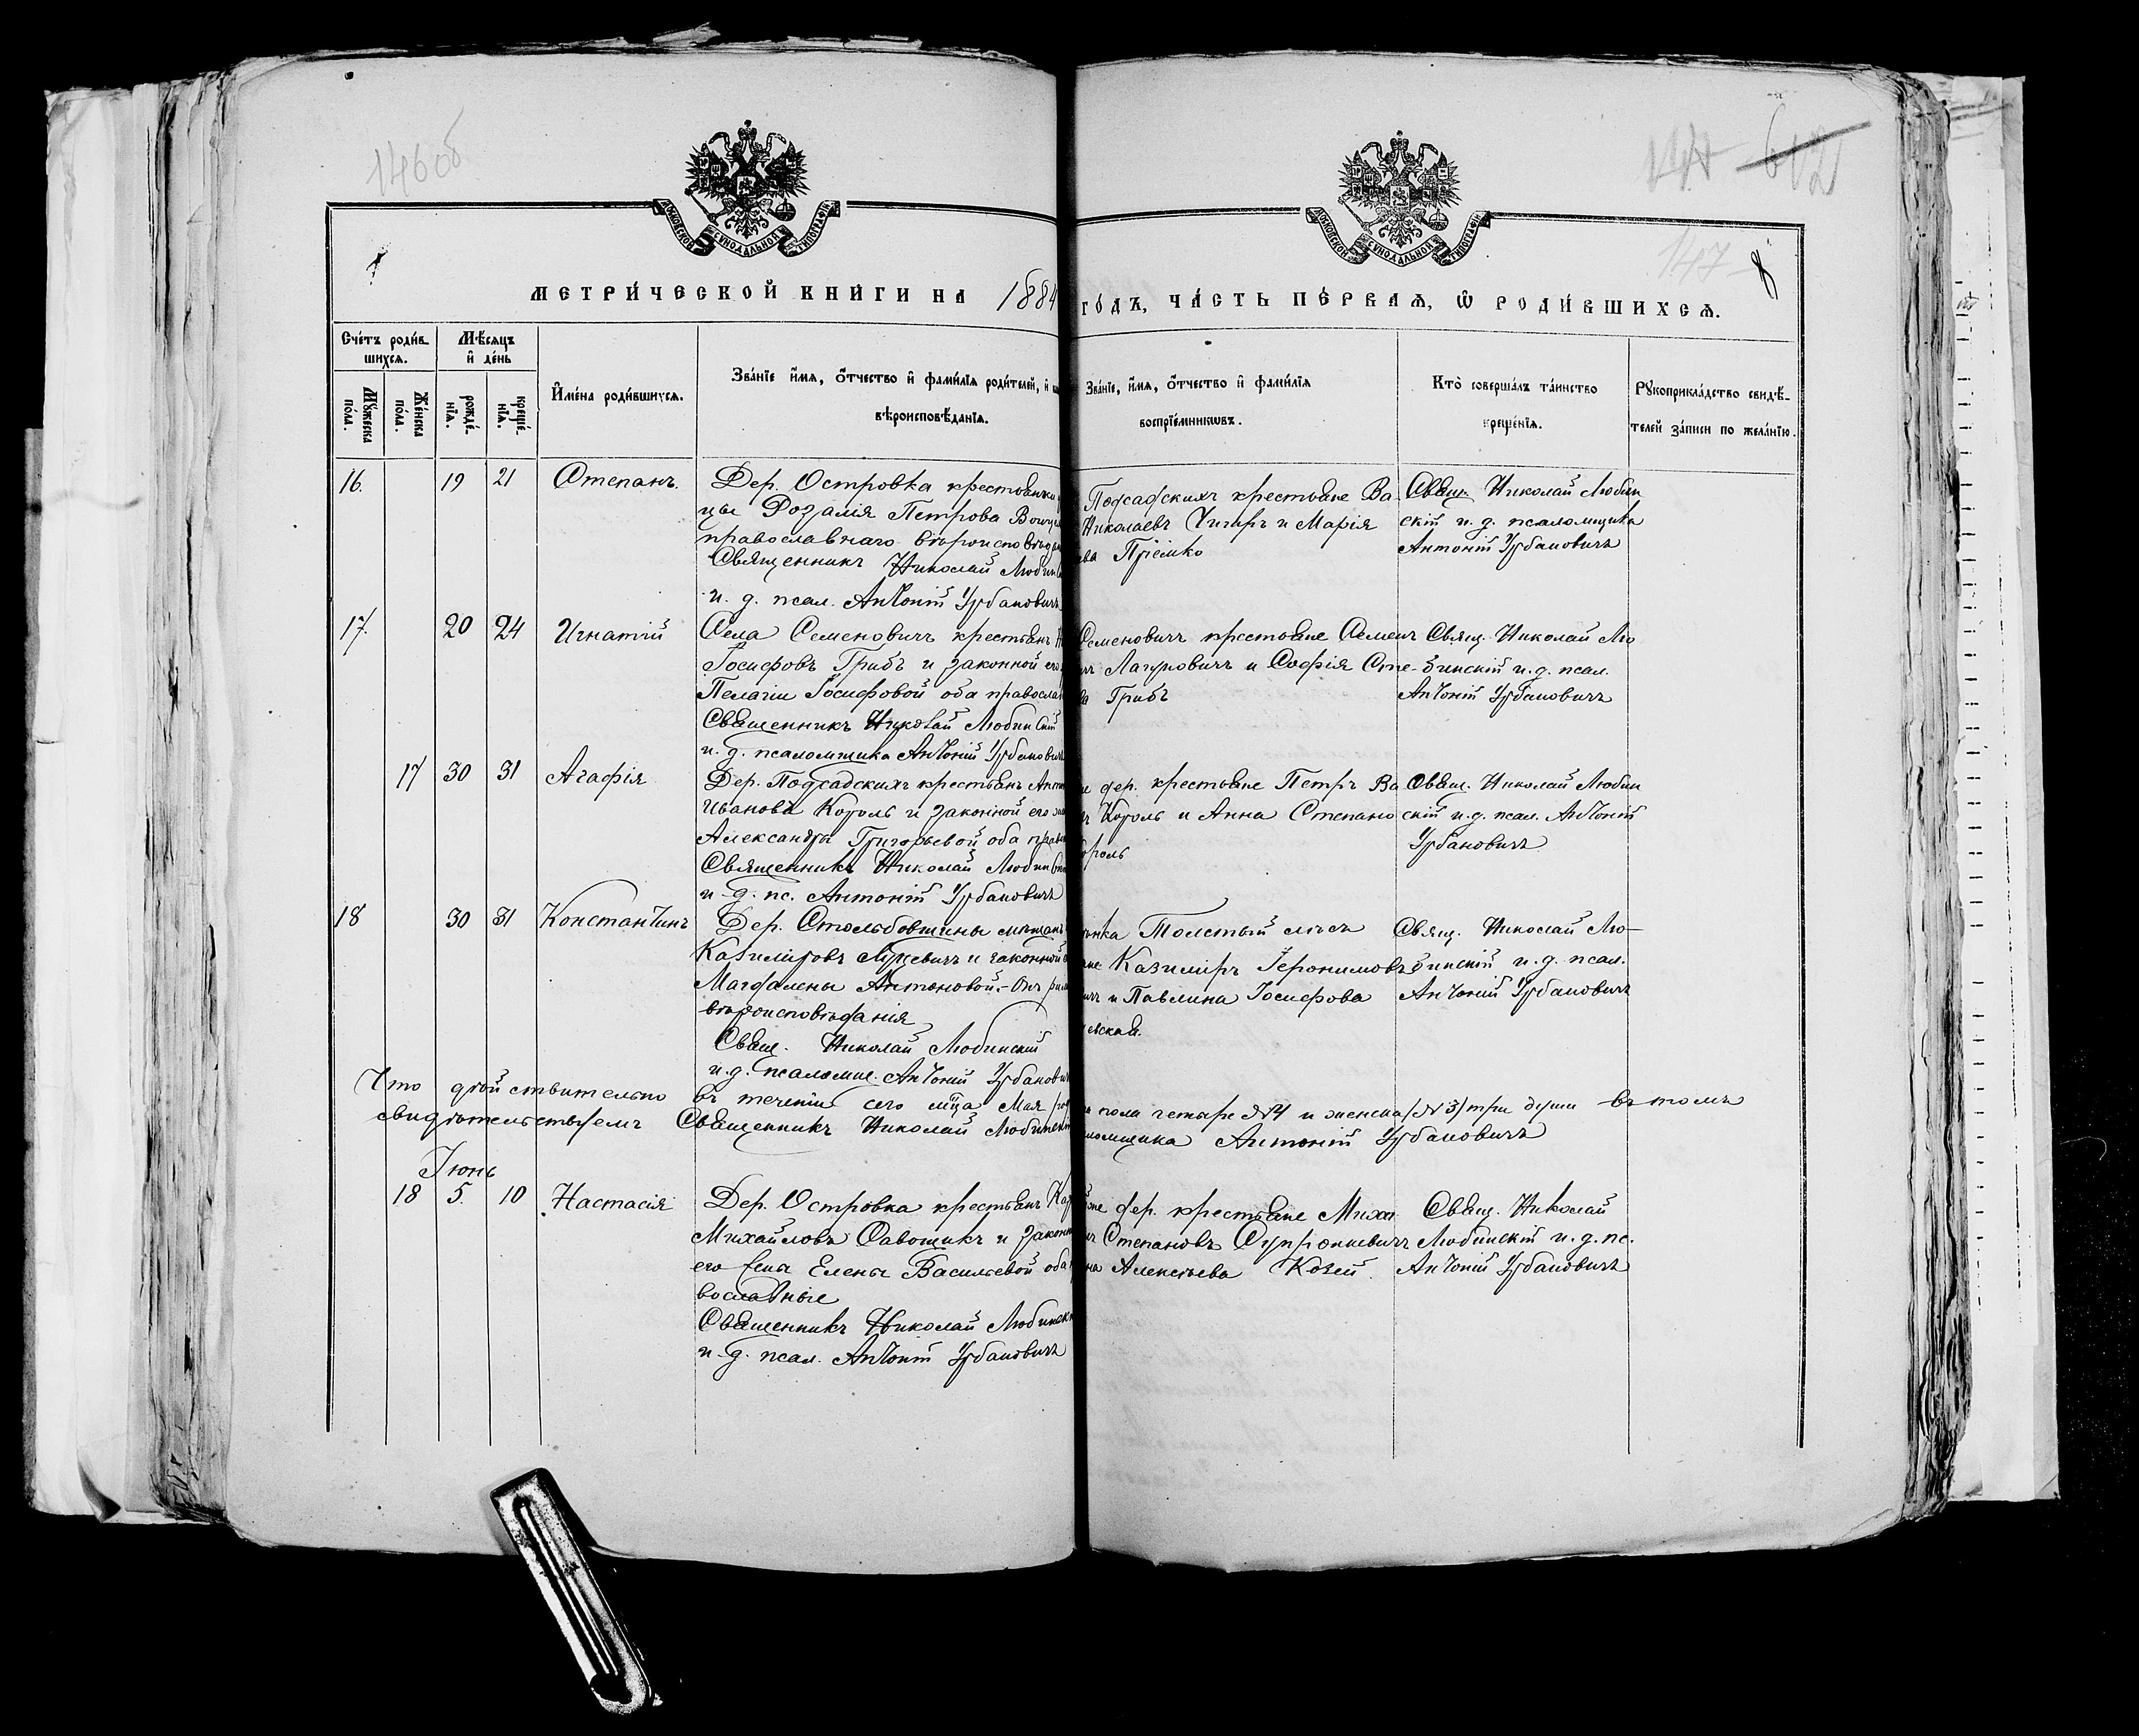 146 об
МОСКОВСКОЙ СѴНОДАЛЬНОЙ ТИПОГРАФІИ
МОСКОВСКОЙ СѴНОДАЛЬНОЙ ТИПОГРАФІИ
612
147
8
МЕТРИ́ЧЕСКОЙ КНИ́ГИ НА 1884
ГО́ДЪ, ЧА́СТЬ ПЕ́РВАѦ, Ѡ РОДИ́ВШИХСѦ.
Сче́тъ роди́вшихсѧ.
Мѣ́сяцъ и҆ де́нь
Мꙋ́жеска по́ла.
Же́нска по́ла.
рожде́нїѧ.
креще́нїѧ.
И҆мена̀ роди́вшихсѧ.
Зва́нїе и҆́мѧ, ѻ҆́тчество и҆ фами́лїѧ роди́телей, и҆
вѣроисповѣ́данїѧ.
Зва́нїе, и҆́мѧ, ѻ҆́тчество и҆ фами́лїѧ
воспрїе́мникѡвъ.
Кто̀ соверша́лъ та́инство
креще́нїѧ.
Рꙋкоприкла́дство свидѣ́-
телей за́писи по жела́нїю.
16. 19 21 Степанъ.
Дер. Островка крестьянки
цы Розалія Петрова
православнаго вѣроисповѣдан
Священникъ Николай Любин
и. д. псал. Антоній Урбановичъ
Подсадскихъ крестьяне Ва
Николаевъ Чигирь и Марія
ева Пріемко
Свящ. Николай Любин
скій и. д. псаломщика
Антоній Урбановичъ
17. 20 24 Игнатій
Села Семеновичъ крестьянъ
Іосифовъ Грибъ и законной его
Пелагіи Іосифовой оба православ
Священникъ Николай Любинскій
и. д. псаломщика Антоній Урбановичъ
Семеновичъ крестьяне Семенъ
Лазуровичъ и Софія Сте-
ва Грибъ
Свящ. Николай Лю
бинскій и. д. псал.
Антоній Урбановичъ
17 30 31 Агафія
Дер. Подсадскихъ крестьянъ Антон
Иванова Король и законной его
Александры Григорьевой оба право
Священникъ Николай Любинск
и. д. пс. Антоній Урбановичъ
дер. крестьяне Петръ Ва
Король и Анна Степано
ороль
Свящ. Николай Любин
скій и. д. псал. Антоній
Урбановичъ
18 30 31 Константинъ
Дер. Стольбовщины мѣщанъ
Казиміровъ Луцевичъ и законной
Магдалены Антоновой. Онъ рим
вѣроисповѣданія
Свящ. Николай Любинскій
и. д. псаломщ. Антоній Урбанович
Толстый лѣсъ
Казиміръ Іеронимовъ
ичъ и Павлина Іосифова
ская.
Свящ. Николай Лю-
бинскій и. д. псал.
Антоній Урбановичъ
Что дѣйствительно въ теченіи сего мца Мая
пола четыре №4 и женска (№3) три души въ томъ
свидѣтельствуемъ Священникъ Николай Любинскій
ломщика Антоній Урбановичъ
Іюнь
18 5. 10 Настасія
Дер. Островка крестьянъ
Михайловъ Савощикъ и законн
его жены Елены Васильевой оба
вославные
Священникъ Николай Любинск
и. д. псал. Антоній Урбановичъ
же дер. крестьяне Миха
Степановъ Супронкевичъ
на Алексѣева Козей.
Свящ. Николай
Любинскій и. д. пс.
Антоній Урбановичъ